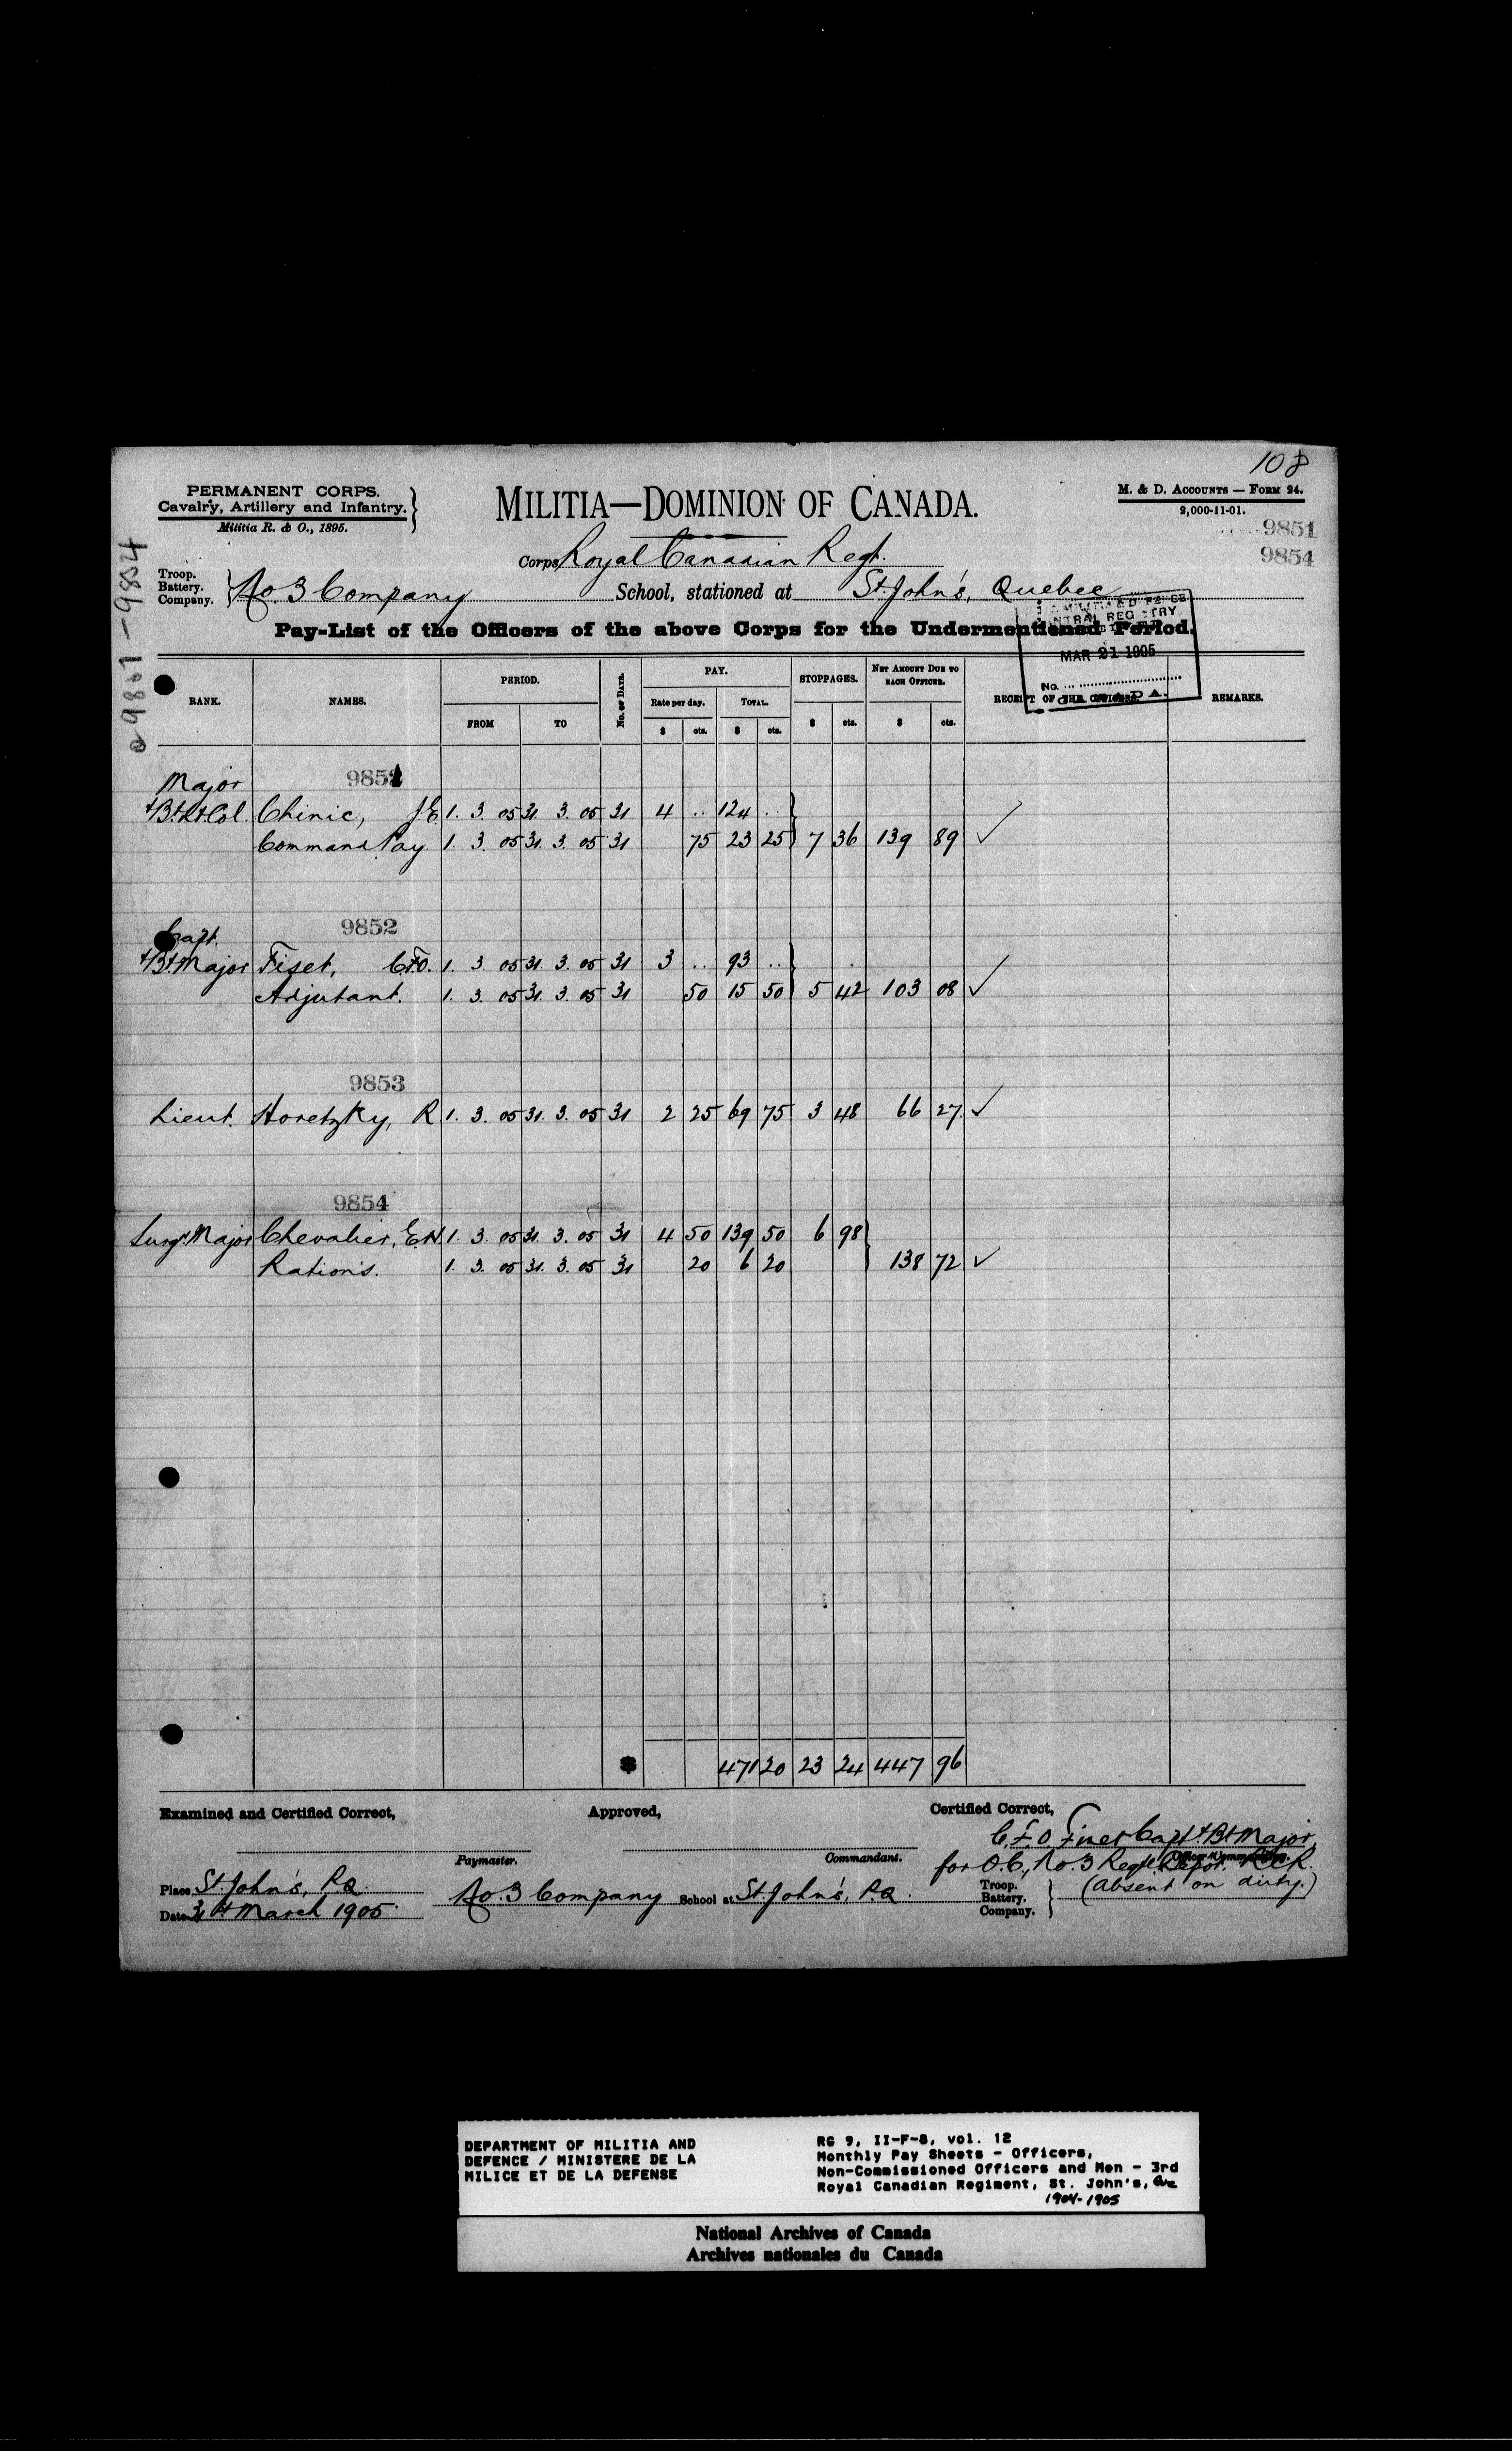 108
PERMANENT CORPS.
Cavalry, Artillery and Infantry.
Militia R. & O., 1895.
MILITIA—DOMINION OF CANADA.
M. & D. ACCOUNTS — FORM 94.
2,000-11-01.
9851
9854
9851-9854
Corps Royal Canadian Regt.
Troop.
Battery.
Company.
No. 3 Company School, stationed at St. John's, Quebec
Pay-List of the Officers of the above Corps for the Undermentioned Period.
MAR 21 1905
No.
RANK. NAMES. PERIOD. No. OF DAYS. PAY. STOPPAGES. NET AMOUNT DUE TO EACH OFFICER. RECEIPT OF THE OFFICERS. REMARKS.
FROM TO Rate per day. TOTAL.
$ cts. $ cts. $ cts. $ cts.
Major 9851
+Bt Lt Col. Chinic, J.E. 1. 3. 05 31. 3. 05 31 4 .. 124 ..
Command Pay 1. 3. 05 31. 3. 05 31 75 23 25 7 36 139 89 ✓
Capt. 9852
+Bt Major Fiset, C.F.O. 1. 3 05 31. 3. 05 31 3 .. 93 ..
Adjutant. 1. 3. 05 31. 3. 05 31 50 15 50 5 42 103 08 ✓
9853
Lieut. Horetzky, R 1. 3. 05 31. 3. 05 31 2 25 69 75 3 48 66 27 ✓
9854
Surg. Major Chevalier, E.N. 1. 3. 05 31. 3. 05 31 4 50 139 50 6 98
Rations. 1. 3. 05 31. 3. 05 31 20 6 20 138 72 ✓
471 20 23 24 447 96
Examined and Certified Correct, Approved, Certified Correct,
C.F.O. Fiset Capt + Bt Major
Paymaster. Commandant. Officer Commanding.
for O.C., No. 3 Regtl Depot. RCR.
(Absent on duty.)
Place St. John's, P.Q.
Date 31st March 1905.
No. 3 Company School at St. John's, P.Q.
Troop.
Battery.
Company.
DEPARTMENT OF MILITIA AND
DEFENCE / MINISTERE DE LA
MILICE ET DE LA DEFENSE
RG 9, II-F-8, vol. 12
Monthly Pay Sheets - Officers,
Non-Commissioned Officers and Men - 3rd
Royal Canadian Regiment, St. John's, Que
1904-1905
National Archives of Canada
Archives nationales du Canada